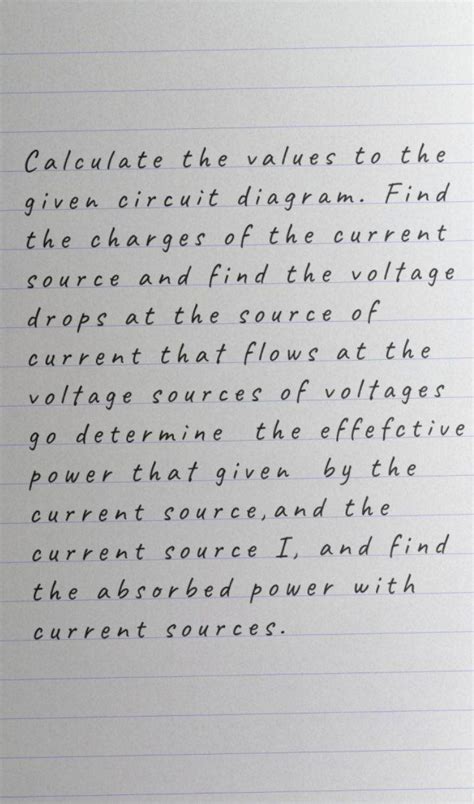 Calculate the values to the
given circuit diagram. Find
the charges of the current
source and find the voltage
drops at the source of
current that flows at the
voltage sources of voltages
go determine the effefctive
power that given by the
current source,and the
current source I, and find
the absorbed power with
current sources.